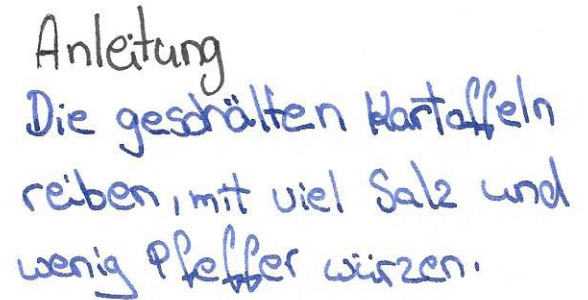 Anleitung
Die geschälten Kartoffeln
reiben, mit viel Salz und
wenig Pfeffer würzen.